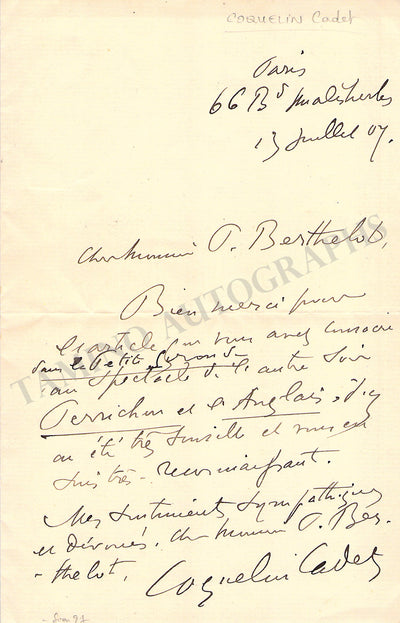 COQUELIN Cadet
Paris
66 Bd Malesherbes
13 Juillet 07.
Cher Monsieur P. Berthelot,
Bien merci pour
l'article que vous avez consacré
dans le Petit Gironde
au spectacle de l'autre soir
Perrichon et l'Anglais. J'en
ai été très sensible et vous en
suis très reconnaissant.
Mes sentiments sympathiques
et dévoués. Cher Monsieur P. Ber-
-thelot.
Coquelin Cadet
TAMINO AUTOGRAPHS